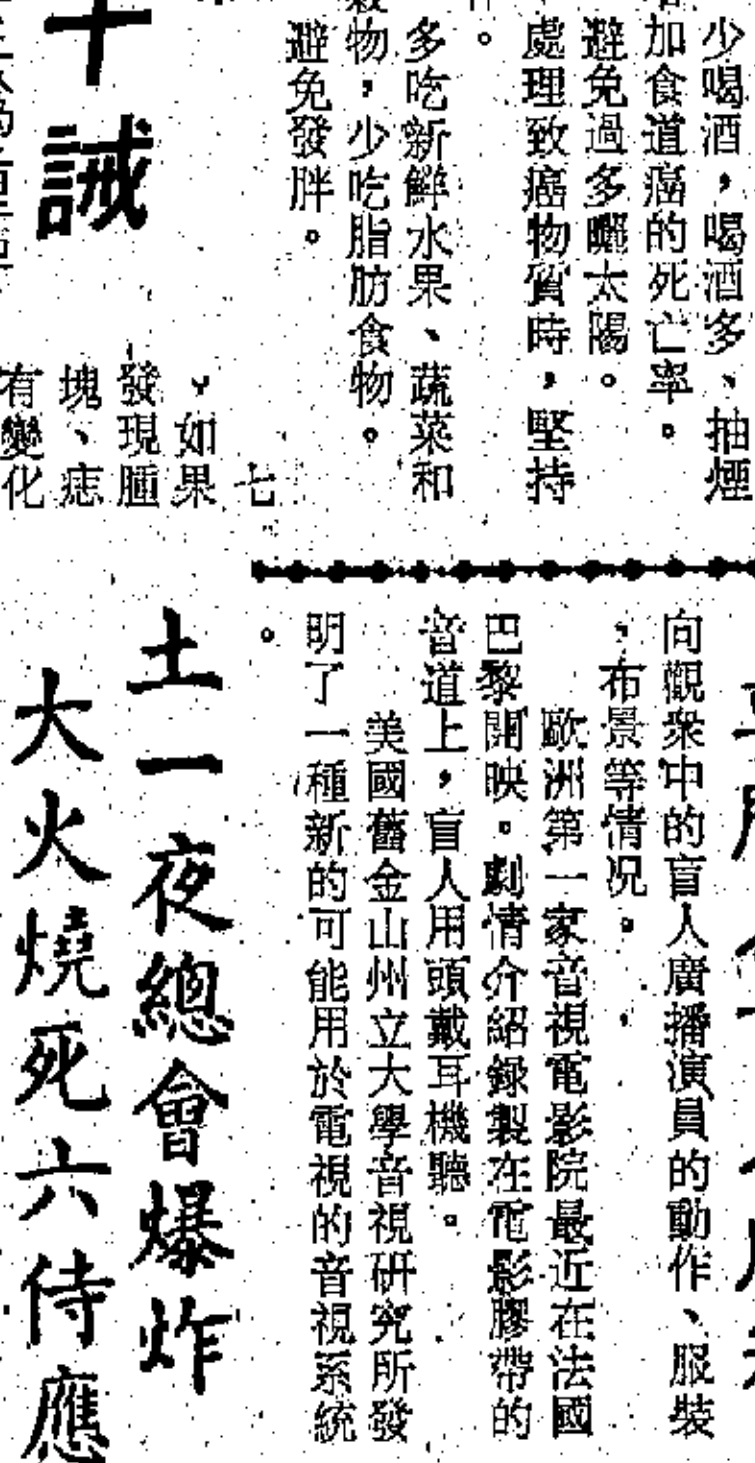 少喝酒，喝酒多、抽煙
加食道癌的死亡率。
避免過多曬太陽。
處理致癌物質時，堅持
。
多吃新鮮水果、蔬菜和
物，少吃脂肪食物。
避免發胖。
十誡
七
，如果
發現腫
塊、痣
有變化
向觀衆中的盲人廣播演員的動作、服裝
，布景等情況。
歐洲第一家音視電影院最近在法國
巴黎開映。劇情介紹錄製在電影膠帶的
音道上，盲人用頭戴耳機聽。
美國舊金山州立大學音視研究所發
明了一種新的可能用於電視的音視系統
。
土一夜總會爆炸
大火燒死六侍應